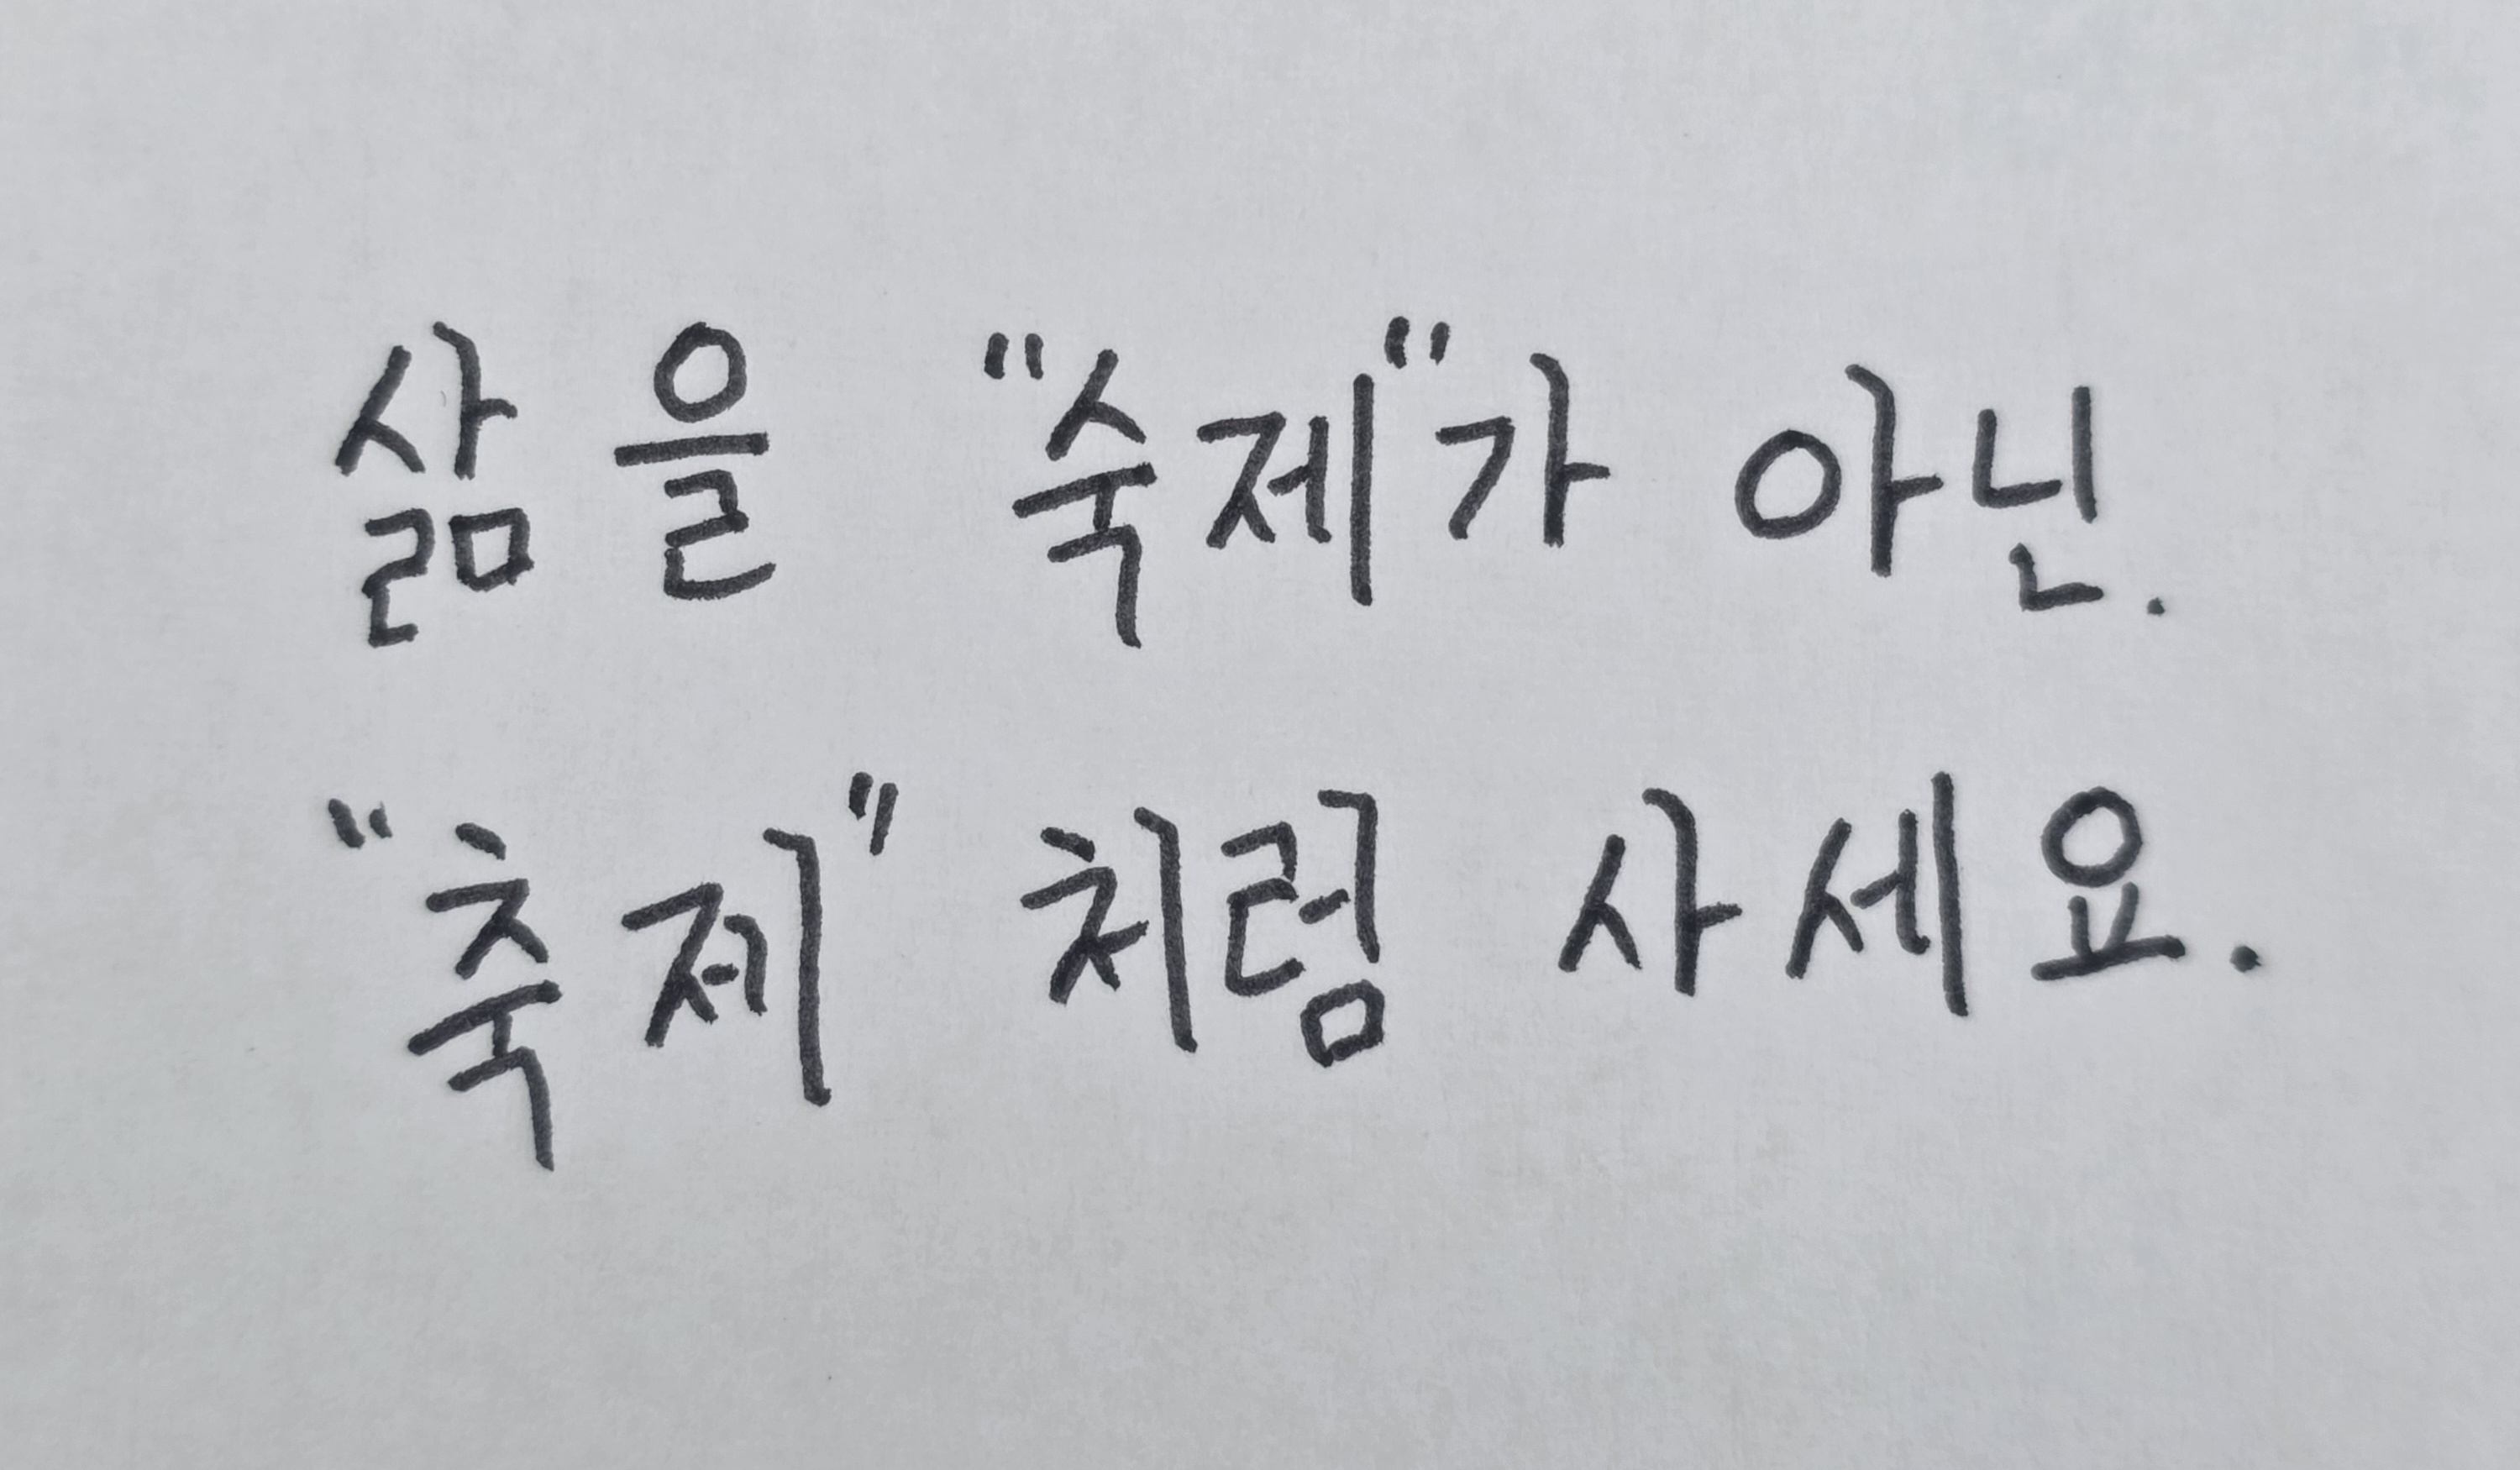 삶을 "숙제"가 아닌.
"축제" 처럼 사세요.